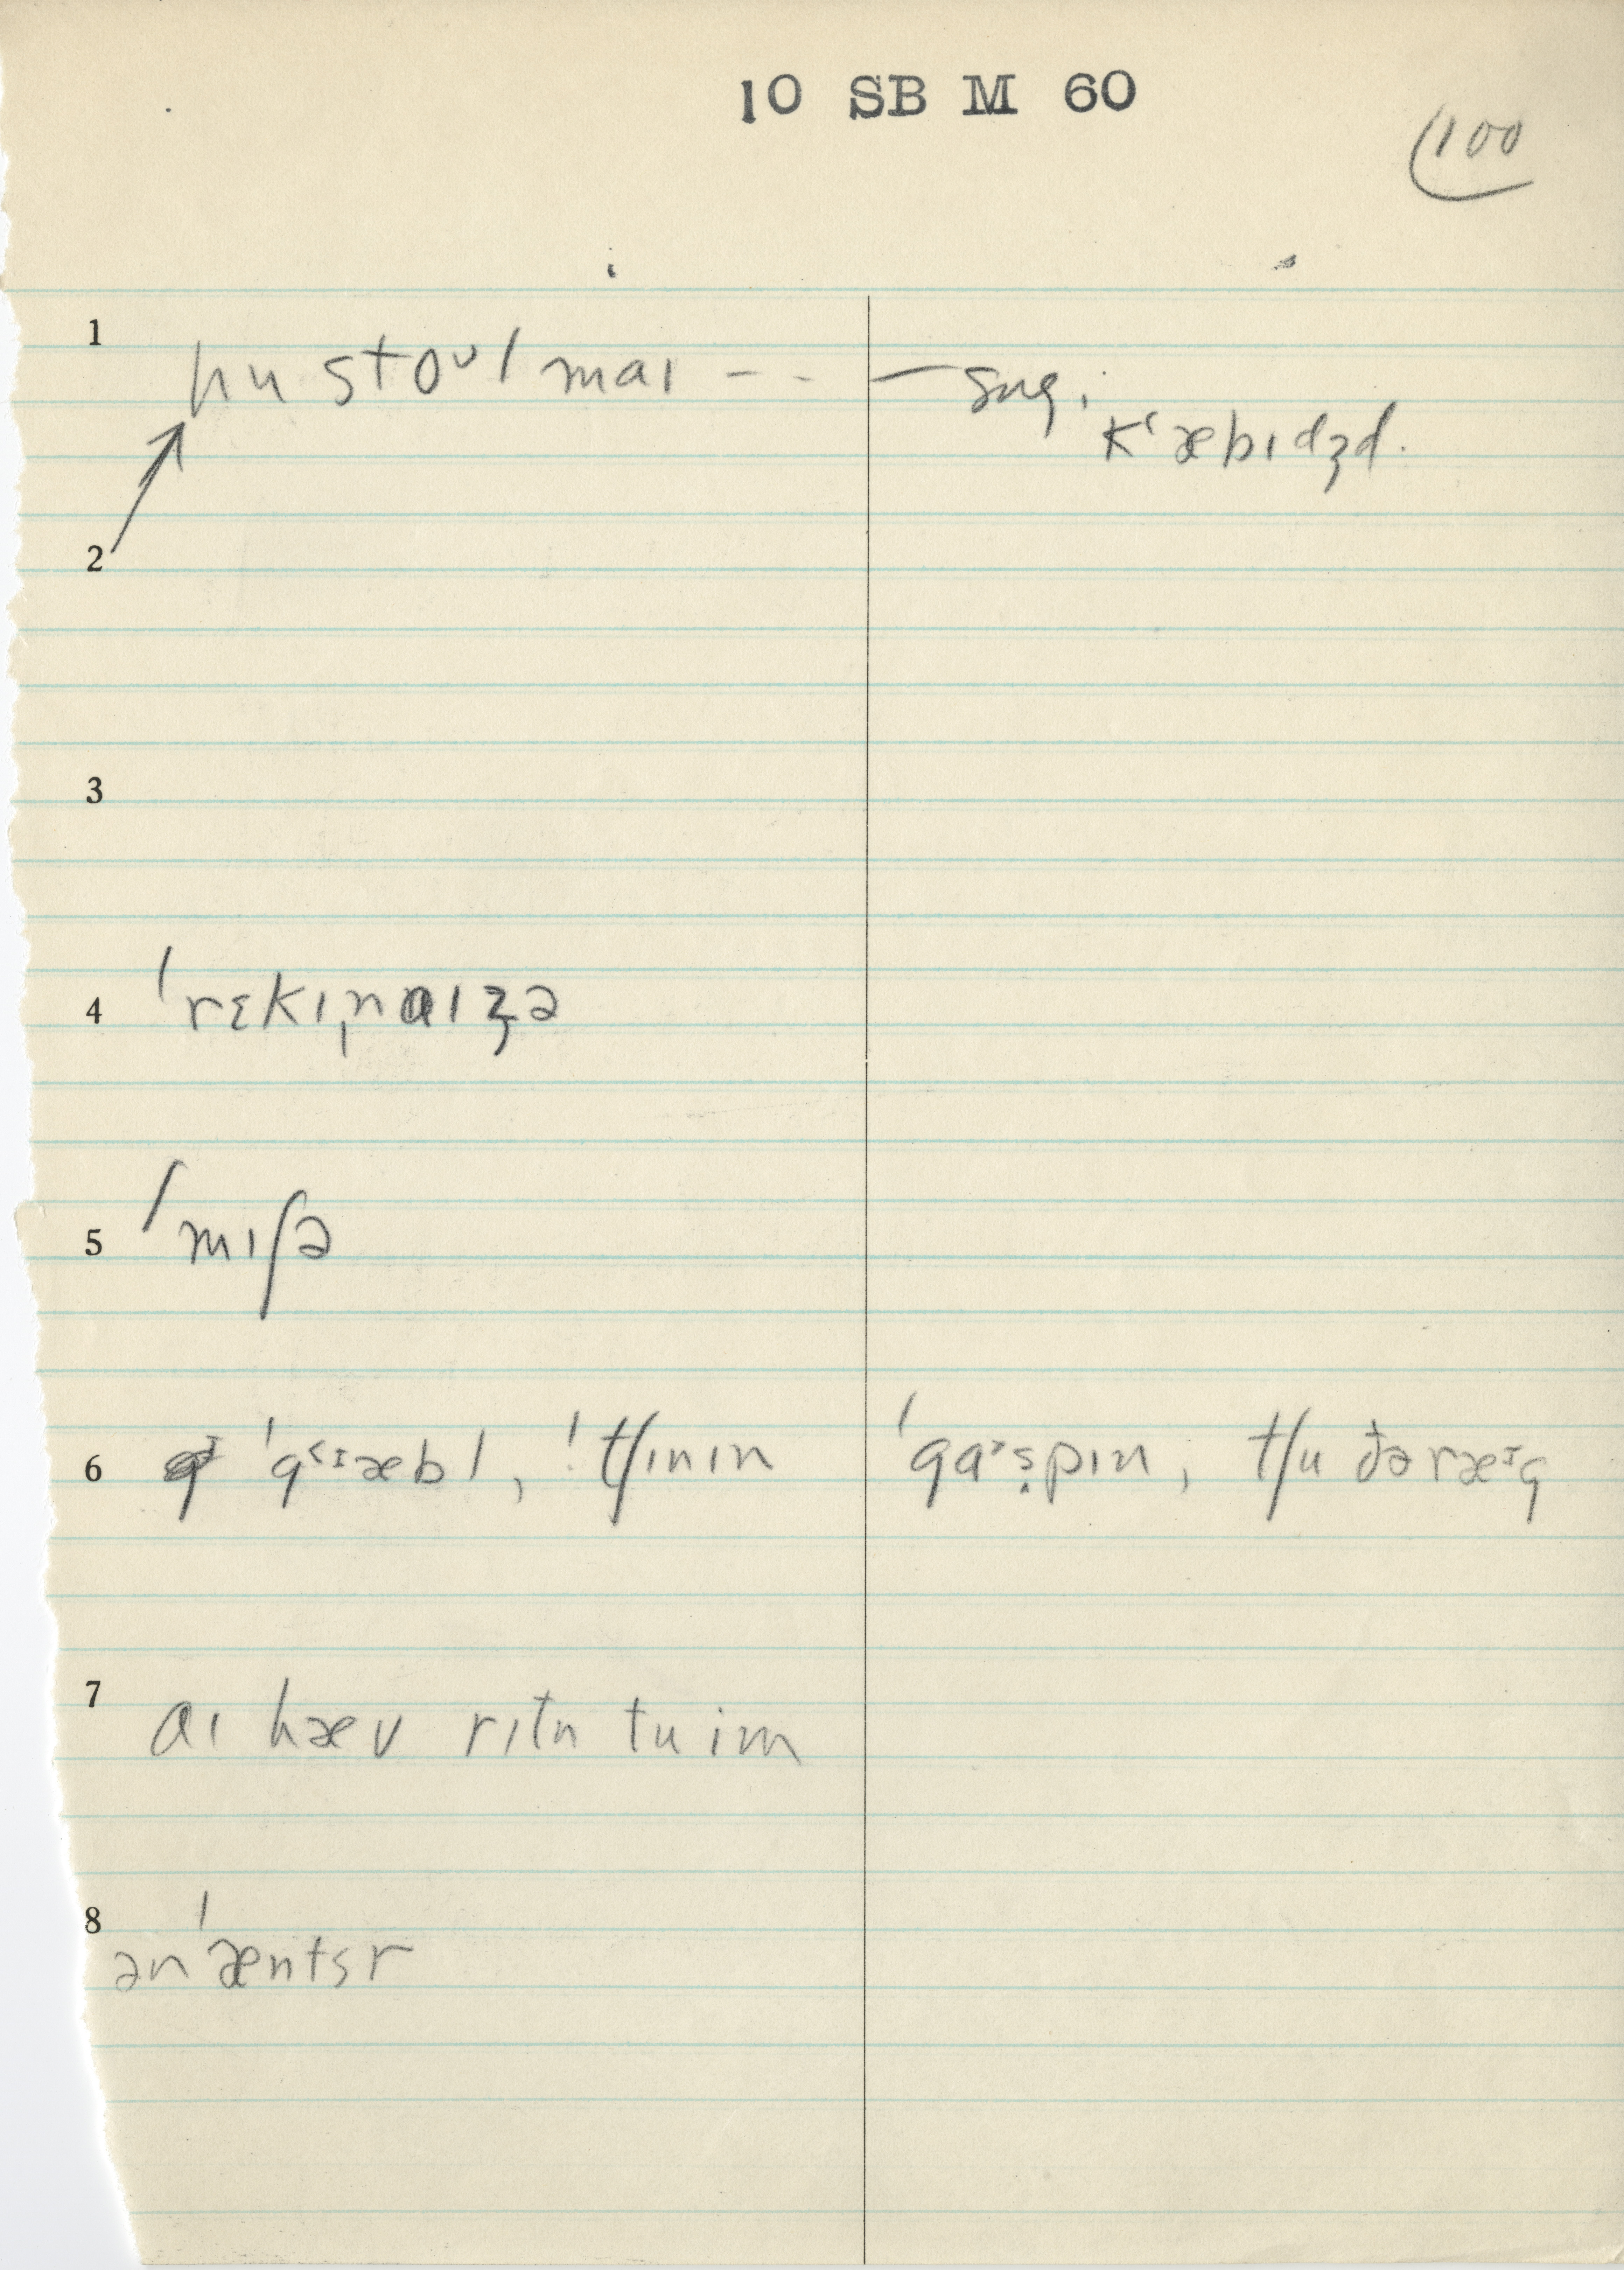 10 SB M 60
100
1 hu stoᴜl maɪ - - — sug.
kʻæbɪdʒd.
2
3
4 ˈrɛkɪ̩naɪʒə
5 ˈmɪʃə
6 ˈgᶻᶦæbl, ˈtʃɪnɪn ˈgaˑs̩pɪn, tʃu ðə ræᶦg
7 aɪ hæv rɪtn tu im
8 ənˈæntsr